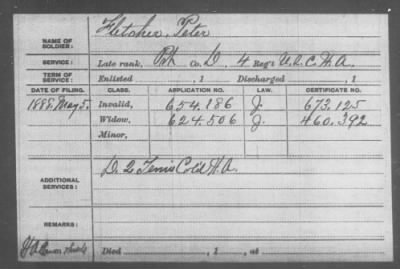 NAME OF SOLDIER: Fletcher, Peter
SERVICE: Late rank, Pvt Co. D, 4 Reg't U.S.C.H.A.
TERM OF SERVICE: Enlisted , 1 Discharged , 1
DATE OF FILING. CLASS. APPLICATION NO. LAW. CERTIFICATE NO.
1888, May 5. Invalid, 654.186 J. 673.125
Widow, 624.506 J. 460.392
Minor,
ADDITIONAL SERVICES: D. 2 Tenn Cold H.A.
REMARKS:
Died , 1 , at